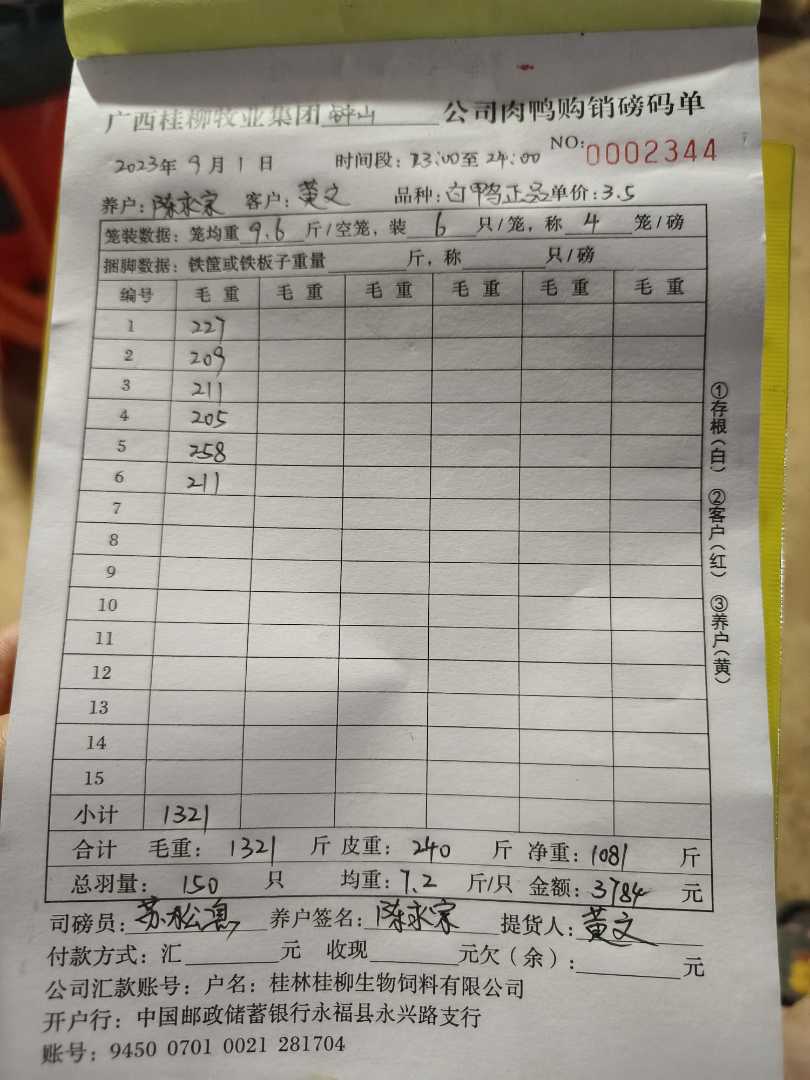 广西桂柳牧业集团钟山公司肉鸭购销磅码单
2023年9月1日 时间段:23:00至24:00 NO:0002344
养户:陈永家 客户:黄文 品种:白鸭正品 单价:3.5
笼装数据:笼均重9.6斤/空笼,装6只/笼,称4笼/磅
捆脚数据:铁筐或铁板子重量 斤,称 只/磅
编号 毛重 毛重 毛重 毛重 毛重 毛重
1 227
2 209
3 211
4 205
5 258
6 211
7
8
9
10
11
12
13
14
15
小计 1321
合计 毛重:1321斤 皮重:240斤 净重:1081斤
总羽量:150只 均重:7.2斤/只 金额:3784元
司磅员:苏松 养户签名:陈永家 提货人:黄文
付款方式:汇 元 收现 元欠(余): 元
公司汇款账号:户名:桂林桂柳生物饲料有限公司
开户行:中国邮政储蓄银行永福县永兴路支行
账号:9450 0701 0021 281704
①存根(白) ②客户(红) ③养户(黄)